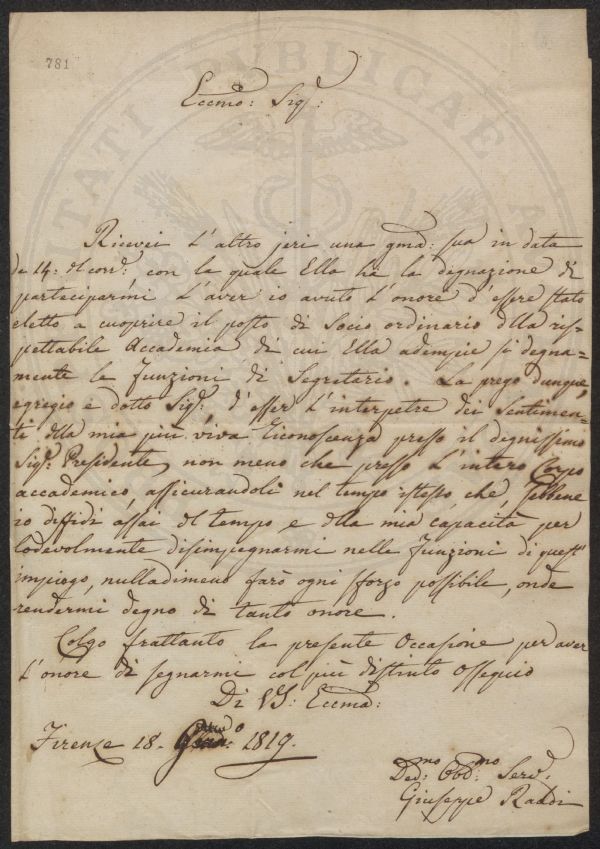 781
Eccmo: Sigr:
Ricevei l'altro jeri una gma: sua in data
de 14: del corre: con la quale Ella ha la degnazione di
parteciparmi l'aver io avuto l'onore d'essere stato
eletto a cuoprire il posto di Socio ordinario della ris-
pettabile Accademia di cui Ella adempie sì degna-
mente le funzioni di Segretario. La prego dunque,
egregio e dotto Sigr: d'esser l'interpetre dei sentimen-
ti della mia più viva riconoscenza presso il degnissimo
Sigr: Presidente, non meno che presso l'intero Corpo
accademico, assicurandoli nel tempo istesso che, sebbene
io diffidi assai del tempo e della mia capacità per
lodevolmente disimpegnarmi nelle funzioni di quest'
impiego, nulladimeno farò ogni sforzo possibile, onde
rendermi degno di tanto onore.
Colgo frattanto la presente Occasione per aver
l'onore di segnarmi col più distinto Ossequio
Di VS: Eccma:
Firenze 18. 1819.
Devmo: Obbmo: Serve:
Giuseppe Raddi
ITATI PUBLICAE